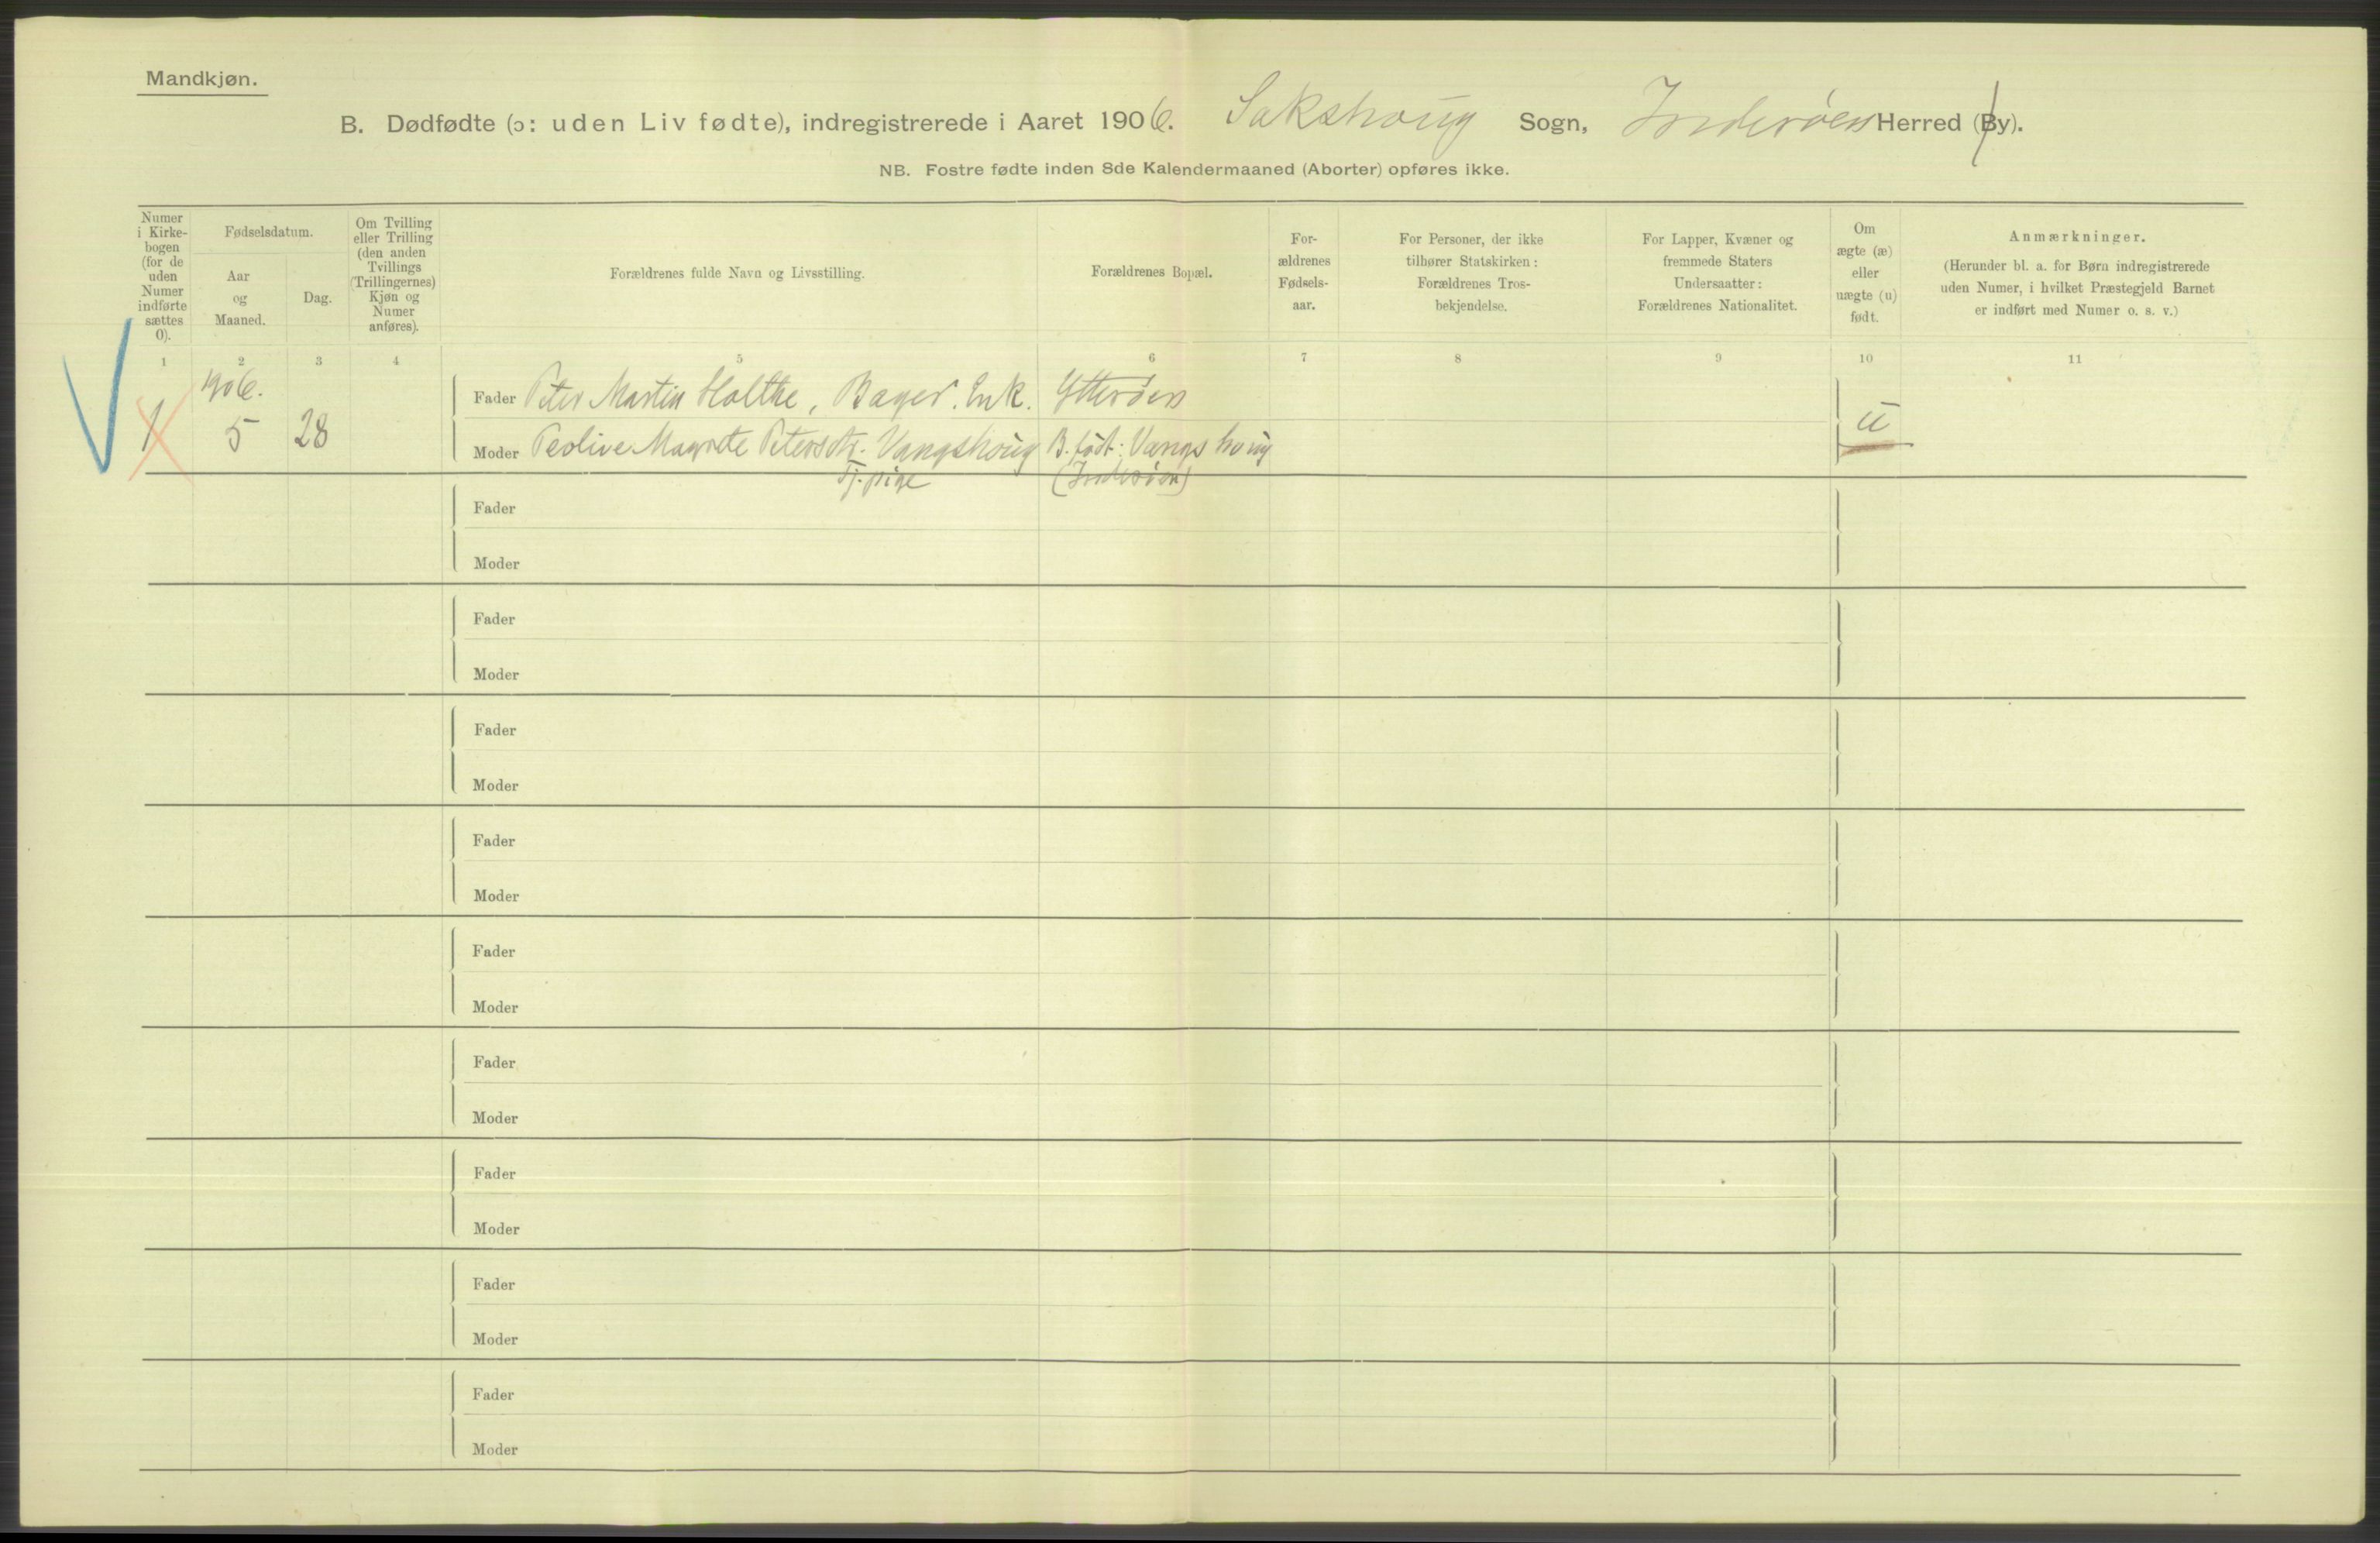 Mandkjøn.
B. Dødfødte (ɔ: uden Liv fødte), indregistrerede i Aaret 1906. Sakshoug Sogn, Inderøen Herred (By).
NB. Fostre fødte inden 8de Kalendermaaned (Aborter) opføres ikke.
Numer
i Kirke-
bogen
(for de
uden
Numer
indførte
sættes
0).
Fødselsdatum.
Aar
og
Maaned.
Dag.
Om Tvilling
eller Trilling
(den anden
Tvillings
(Trillingernes)
Kjøn og
Numer
anføres).
Forældrenes fulde Navn og Livsstilling.
Forældrenes Bopæl.
For-
ældrenes
Fødsels-
aar.
For Personer, der ikke
tilhører Statskirken:
Forældrenes Tros-
bekjendelse.
For Lapper, Kvæner og
fremmede Staters
Undersaatter:
Forældrenes Nationalitet.
Om
ægte (æ)
eller
uægte (u)
født.
Anmærkninger.
(Herunder bl. a. for Børn indregistrerede
uden Numer, i hvilket Præstegjeld Barnet
er indført med Numer o. s. v.)
1 2 3 4 5 6 7 8 9 10 11
1906.
Fader Peter Martin Holthe, Bager. Enk. Ytterøen
1 5 28 u
Moder Peolive Magrete Petersdtr. Vangshoug B. født: Vangshoug
Tj. pige (Inderøen)
Fader
Moder
Fader
Moder
Fader
Moder
Fader
Moder
Fader
Moder
Fader
Moder
Fader
Moder
Fader
Moder
Fader
Moder